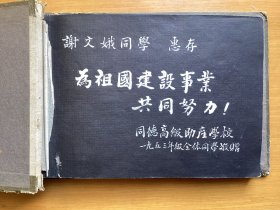 謝文娥同學 惠存
為祖國建設事業
共同努力！
同德高級助產學校
一九五三年級全体同學敬贈